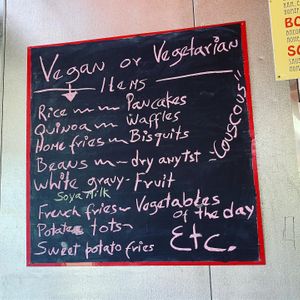 Vegan or Vegetarian
Items
Rice Pancakes
Quinoa Waffles
Home fries Bisquits
Beans dry anytst
White gravy - Fruit
Soya Milk
French fries - Vegetables
of the day
Potatoe tots
Sweet potato fries
Etc.
"Couscous"